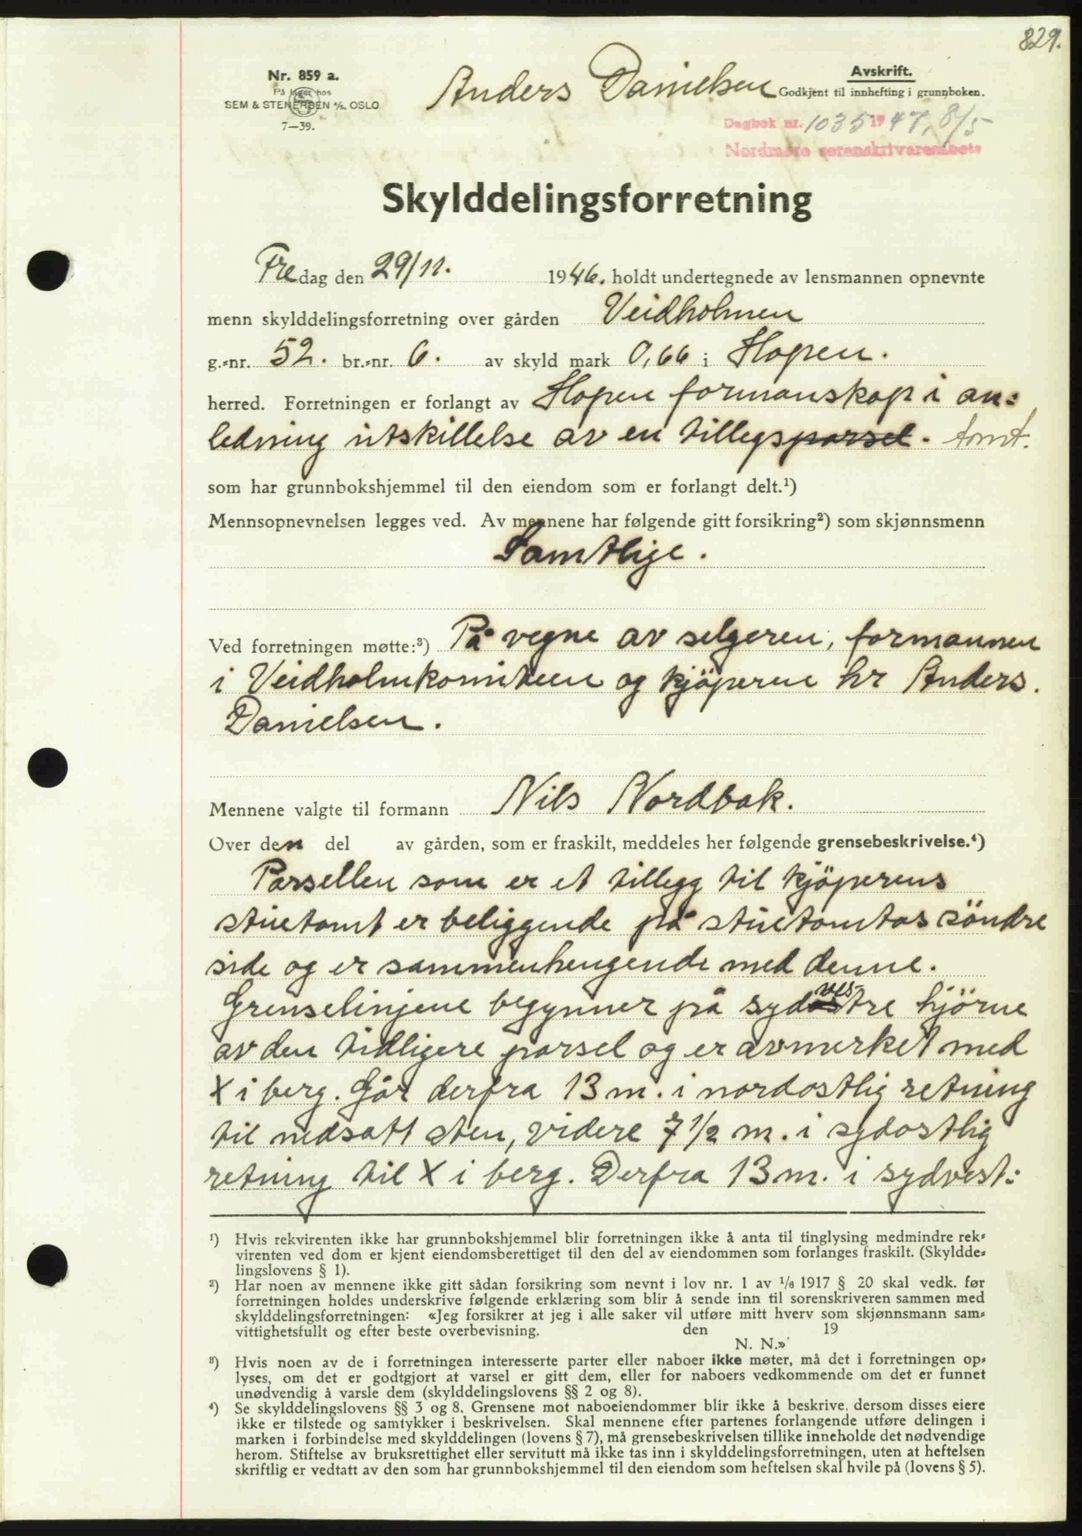 829.
Nr. 859 a.
På lager hos
SEM & STENERSEN A/S, OSLO
7—39.
Anders Danielsen
Avskrift.
Godkjent til innhefting i grunnboken.
Dagbok nr. 1035 1947, 8/5
Nordmøre sorenskrivarembete
Skylddelingsforretning
Fredag den 29/11. 1946. holdt undertegnede av lensmannen opnevnte
menn skylddelingsforretning over gården Veidholmen
g.-nr. 52. br.-nr. 6. av skyld mark 0,66 i Hopen.
herred. Forretningen er forlangt av Hopen formanskap i an=
ledning utskillelse av en tillegsparsel. tomt.
som har grunnbokshjemmel til den eiendom som er forlangt delt.¹)
Mennsopnevnelsen legges ved. Av mennene har følgende gitt forsikring²) som skjønnsmenn
Samtlige.
Ved forretningen møtte:³) På vegne av selgeren, formannen
i Veidholmkomiteen og kjöperne hr Anders.
Danielsen.
Mennene valgte til formann Nils Nordbak.
Over den del av gården, som er fraskilt, meddeles her følgende grensebeskrivelse.⁴)
Parsellen som er et tillegg til kjöperens
stuetomt er beliggende på stuetomtas söndre
side og er sammenhengende med denne.
Grenselinjene begynner på sydvestre hjörne
av den tidligere parsel og er avmerket med
X i berg. Går derfra 13 m. i nordostlig retning
til nedsatt sten, videre 7 1/2 m. i sydostlig
retning til X i berg. Derfra 13 m. i sydvest:
¹) Hvis rekvirenten ikke har grunnbokshjemmel blir forretningen ikke å anta til tinglysing medmindre rek-
virenten ved dom er kjent eiendomsberettiget til den del av eiendommen som forlanges fraskilt. (Skyldde-
lingslovens § 1).
²) Har noen av mennene ikke gitt sådan forsikring som nevnt i lov nr. 1 av 1/6 1917 § 20 skal vedk. før
forretningen holdes underskrive følgende erklæring som blir å sende inn til sorenskriveren sammen med
skylddelingsforretningen: «Jeg forsikrer at jeg i alle saker vil utføre mitt hverv som skjønnsmann sam-
vittighetsfullt og efter beste overbevisning. den 19
N. N.»
³) Hvis noen av de i forretningen interesserte parter eller naboer ikke møter, må det i forretningen op-
lyses, om det er godtgjort at varsel er gitt dem, eller for naboers vedkommende om det er funnet
unødvendig å varsle dem (skylddelingslovens §§ 2 og 8).
⁴) Se skylddelingslovens §§ 3 og 8. Grensene mot naboeiendommer blir ikke å beskrive, dersom disses eiere
ikke er tilstede og samtykker i beskrivelsen. Skal mennene efter partenes forlangende utføre delingen i
marken i forbindelse med skylddelingen (lovens § 7), må grensebeskrivelsen tillike inneholde det nødvendige
herom. Stiftelse av bruksrettighet eller servitutt må ikke tas inn i skylddelingsforretningen, uten at heftelsen
skriftlig er vedtatt av den som har grunnbokshjemmel til den eiendom som heftelsen skal hvile på (lovens § 5).